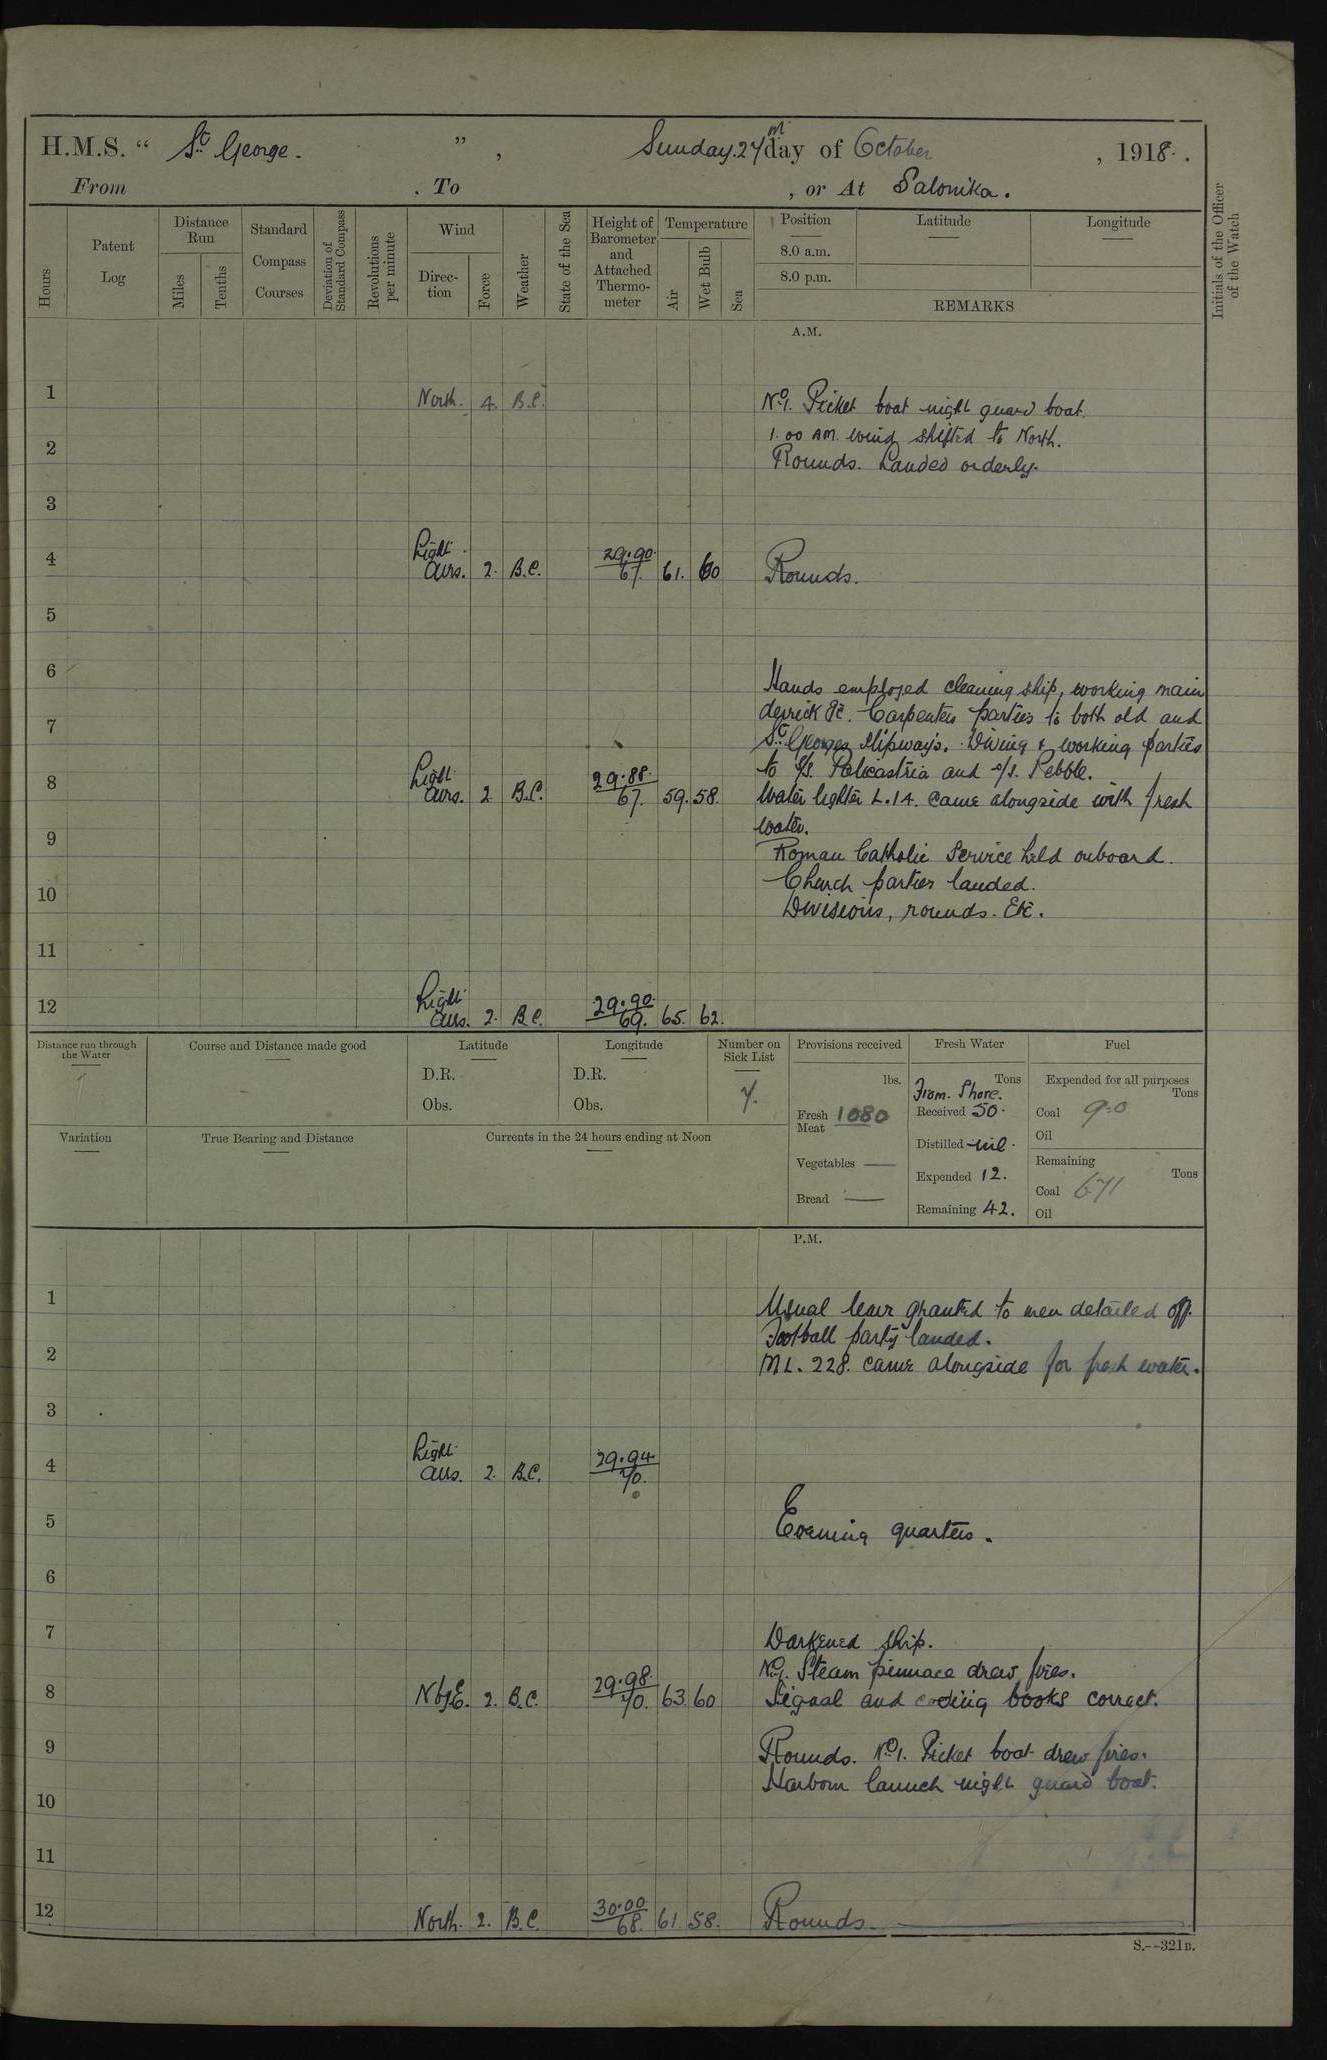 H.M.S. " St. George. ", Sunday. 27th day of October, 1918.
From . To , or At Salonika.
Hours
Patent Log
Distance Run
Miles
Tenths
Standard Compass Courses
Deviation of Standard Compass
Revolutions per minute
Wind
Direction
Force
Weather
State of the Sea
Height of Barometer and Attached Thermometer
Temperature
Air
Wet Bulb
Sea
Position Latitude Longitude
8.0 a.m.
8.0 p.m.
REMARKS
Initials of the Officer of the Watch
A.M.
1 North. 4. B.C. No. 1. Picket boat night guard boat.
1.00 AM. wind shifted to North.
2 Rounds. Landed orderly.
3
4 Light Airs. 2. B.C. 29.90. 67. 61. 60 Rounds.
5
6 Hands employed cleaning ship, working main
derrick &c. Carpenters parties to both old and
7 St. Georges Slipways. Diving & working parties
to S/S. Policastria and S/S. Pebble.
8 Light Airs. 2 B.C. 29.88. 67. 59. 58. Water lighter L.14. came alongside with fresh
water.
9 Roman Catholic Service held onboard.
Church parties landed.
10 Divisions, rounds. Etc.
11
12 Light Airs. 2. B.C. 29.90. 69. 65. 62.
Distance run through the Water
Course and Distance made good
Latitude
D.R.
Obs.
Longitude
D.R.
Obs.
Number on Sick List
7.
Provisions received
lbs.
Fresh Meat 1080
Vegetables —
Bread —
Fresh Water
Tons
From. Shore.
Received 50.
Distilled nil.
Expended 12.
Remaining 42.
Fuel
Expended for all purposes
Tons
Coal 9.0
Oil
Remaining
Tons
Coal 671
Oil
Variation
True Bearing and Distance
Currents in the 24 hours ending at Noon
P.M.
1 Usual leave granted to men detailed off.
Football party landed.
2 ML. 228. came alongside for fresh water.
3
4 Light Airs. 2. B.C. 29.94. 70.
5 Evening quarters.
6
7 Darkened ship.
No. 1. Steam pinnace drew fires.
8 N by E. 2. B.C. 29.98. 70. 63. 60 Signal and coding books correct.
9 Rounds. No. 1. Picket boat drew fires.
Harbour launch night guard boat.
10
11
12 North. 2. B.C. 30.00 68. 61. 58. Rounds
S.--321B.